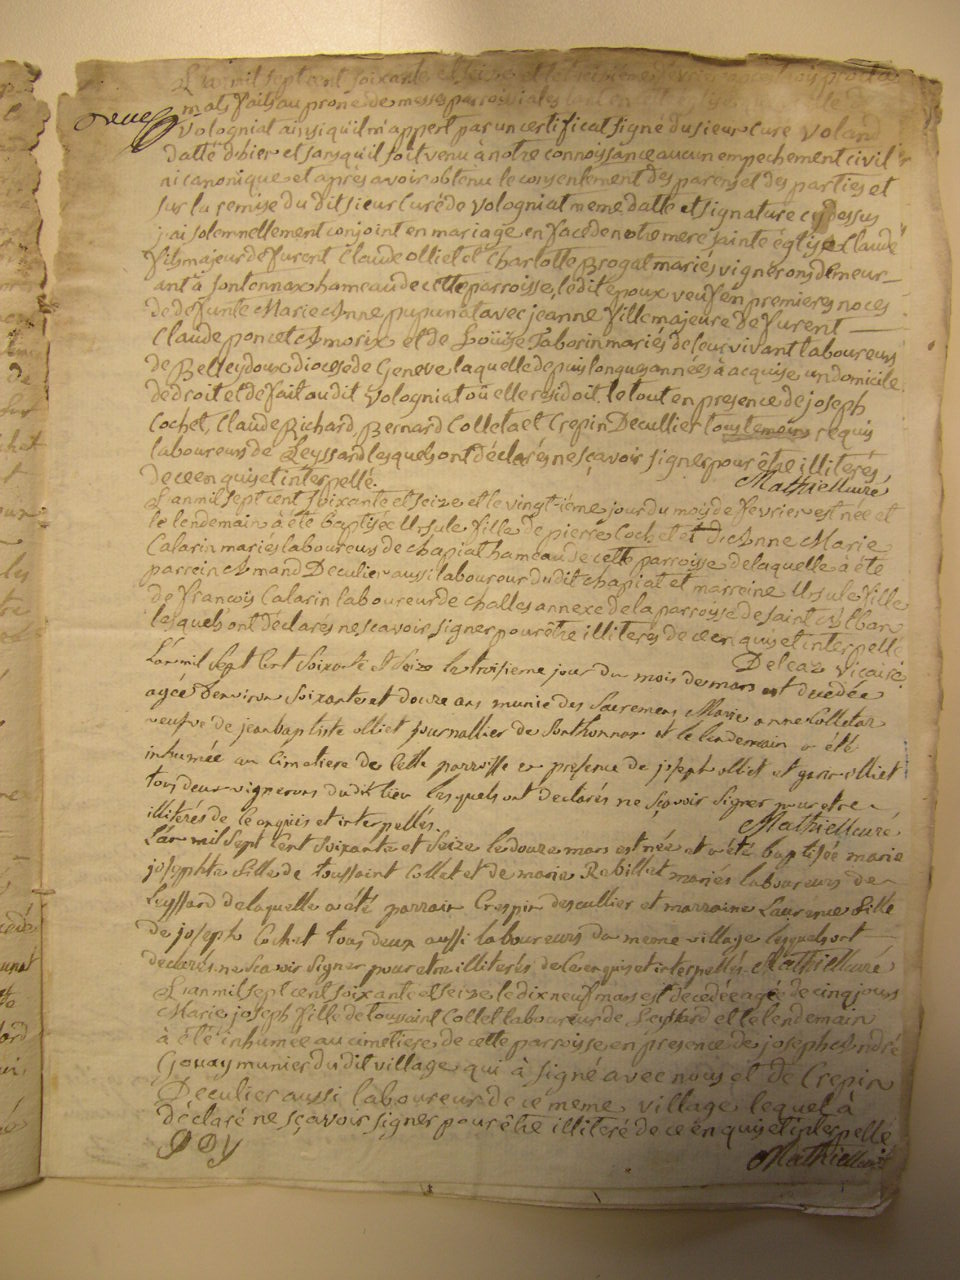 L'an mil sept cent soixante et seize et le treizième février après trois procla
mats faits au prone de messes parroissiales tant en
Vologniat ainsi qu'il m'appert par un certificat signé du sieur Curé Voland
datté d'hier et sans qu'il soit venu à notre connoissance aucun empechement civil
ni canonique et après avoir obtenu le consentement des parens et des parties et
sur la remise du dit sieur Curé de Vologniat meme datte et signature cy dessus
j'ai solemnellement conjoint en mariage en face de notre mere sainte église Claude
fils majeur de furent Claude olliet et Charlotte Brogat mariés vignerons demeur
ant à fontennax hameau de cette parroisse, ledit époux veuf en premieres noces
de defunte Marie Anne pupunat avec jeanne fille majeure de furent
Claude poncet Amorix et de Loüise Taborin mariés de leur vivant laboureurs
de Belleydoux diocèse de Geneve laquelle depuis longues années à acquise un domicile
de droit et de fait au dit Vologniat où elle residoit. le tout en presence de joseph
Cochet, Claude Richard, Bernard Colleta et Crepin Decullier tous temoins requis
laboureurs de Leyssard lesquels ont déclarés ne sçavoir signer pour être illiterés
de ce enquis et interpellé. Mathieu curé
L'an mil sept cent soixante et seize et le vingtième jour du mois de février est née et
le lendemain à été baptisée Ursule fille de pierre Cochet et d'Anne Marie
Calarin mariés laboureurs de chapiat hameau de cette parroisse de laquelle à été
parrein Amand Deculier aussi laboureur du dit chapiat et marreine Ursule fille
de françois Calarin laboureur de challes annexe de la parroisse de saint Alban
lesquels ont déclarés ne scavoir signer pour être illiterés de ce enquis et interpellé
Deleaz vicaire
L'an mil sept Cent soixante et seize le troisieme jour du mois de mars est decedée
agée d'environ soixante et douze ans munie des sacremens Marie anne Colletaz
veufve de jean baptiste olliet journallier de fonthonnax et le lendemain a été
inhumée au Cimetiere de cette parroisse en presence de joseph olliet et olliet
tous deux vignerons dudit lieu lesquels ont declarés ne sçavoir signer pour etre
illitérés de ce enquis et interpellés. Mathieu curé
L'an mil sept Cent soixante et seize le douze mars est née et a été baptisée marie
josephte fille de toussaint Collet et de marie Rebillet mariés laboureurs de
Leyssard de laquelle a été parrain Crespin descullier et marraine Laurence fille
de joseph Cochet tous deux aussi laboureurs du meme village lesquels ont
declarés ne sçavoir signer pour etre illiterés de ce enquis et interpellés. Mathieu curé
L'an mil sept cent soixante et seize le dix neuf mars est decedée agée de cinq jours
Marie joseph fille de toussaint Collet laboureur de Leyssard et le lendemain
à été inhumée au cimetiere de cette parroisse en presence de joseph André
Goüay munier du dit village qui à signé avec nous et de Crepin
Deculier aussi laboureur de ce meme village lequel à
déclaré ne sçavoir signer pour être illiteré de ce enquis et interpellé
Mathieu curé